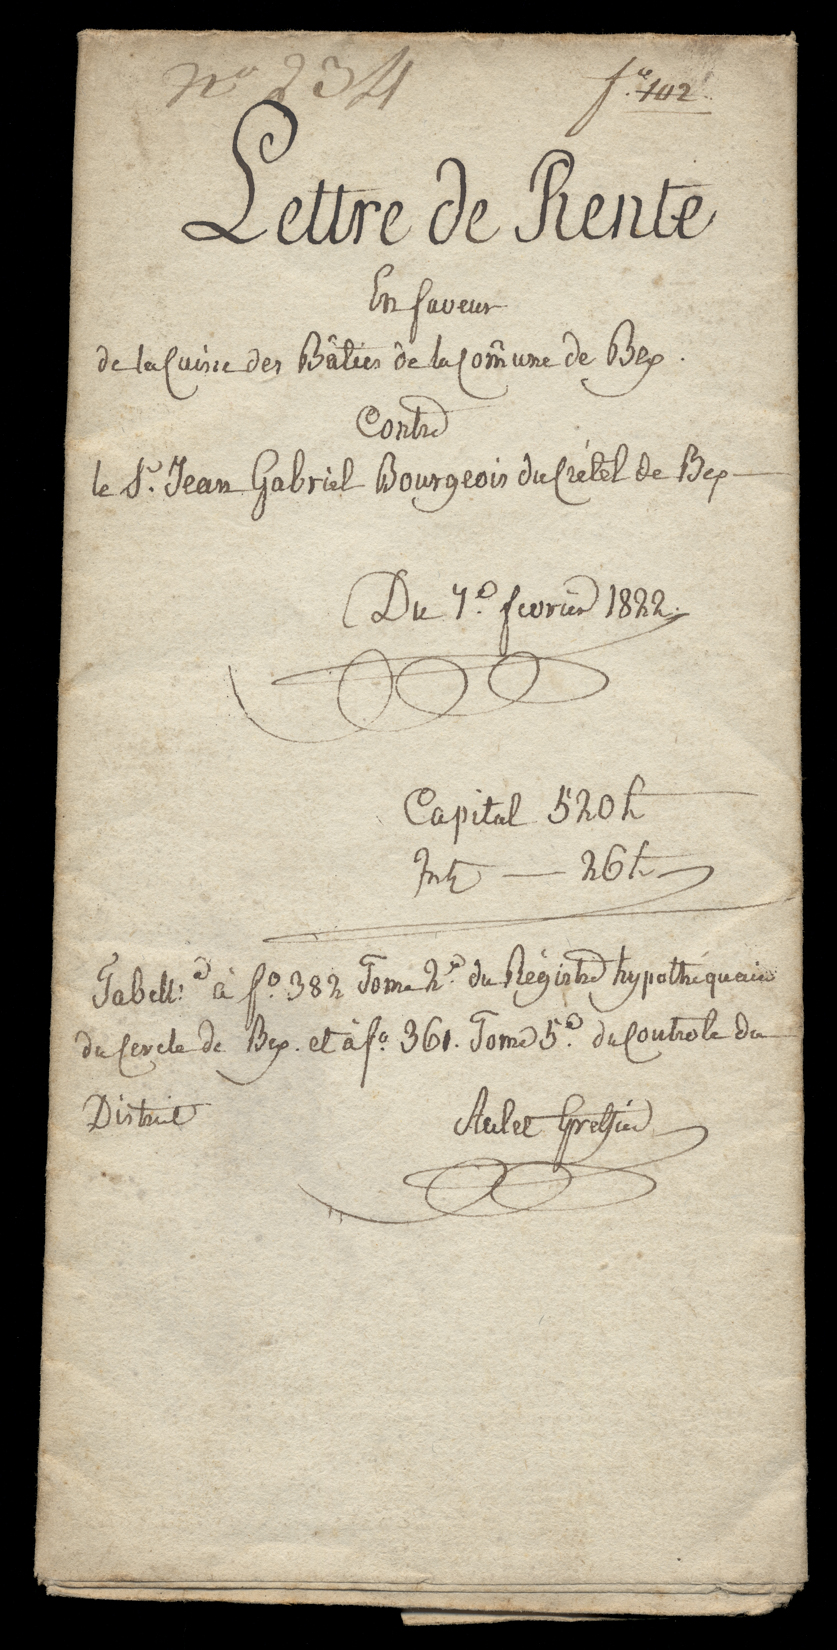 No 234
fo. 102
Lettre de Rente
En faveur
de la Cuisie des Bâties de la Com̃une de Bex.
Contre
le Sr. Jean Gabriel Bourgeois du Crétel de Bex
Du 7e. fevrier 1822.
Capital 520 fr
Int. — 26 fr
Tabell:é à fo. 382 Tome 2d. du Régistre hypothéquaire
du Cercle de Bex. et à fo. 361. Tome 5e. du Controle du
District